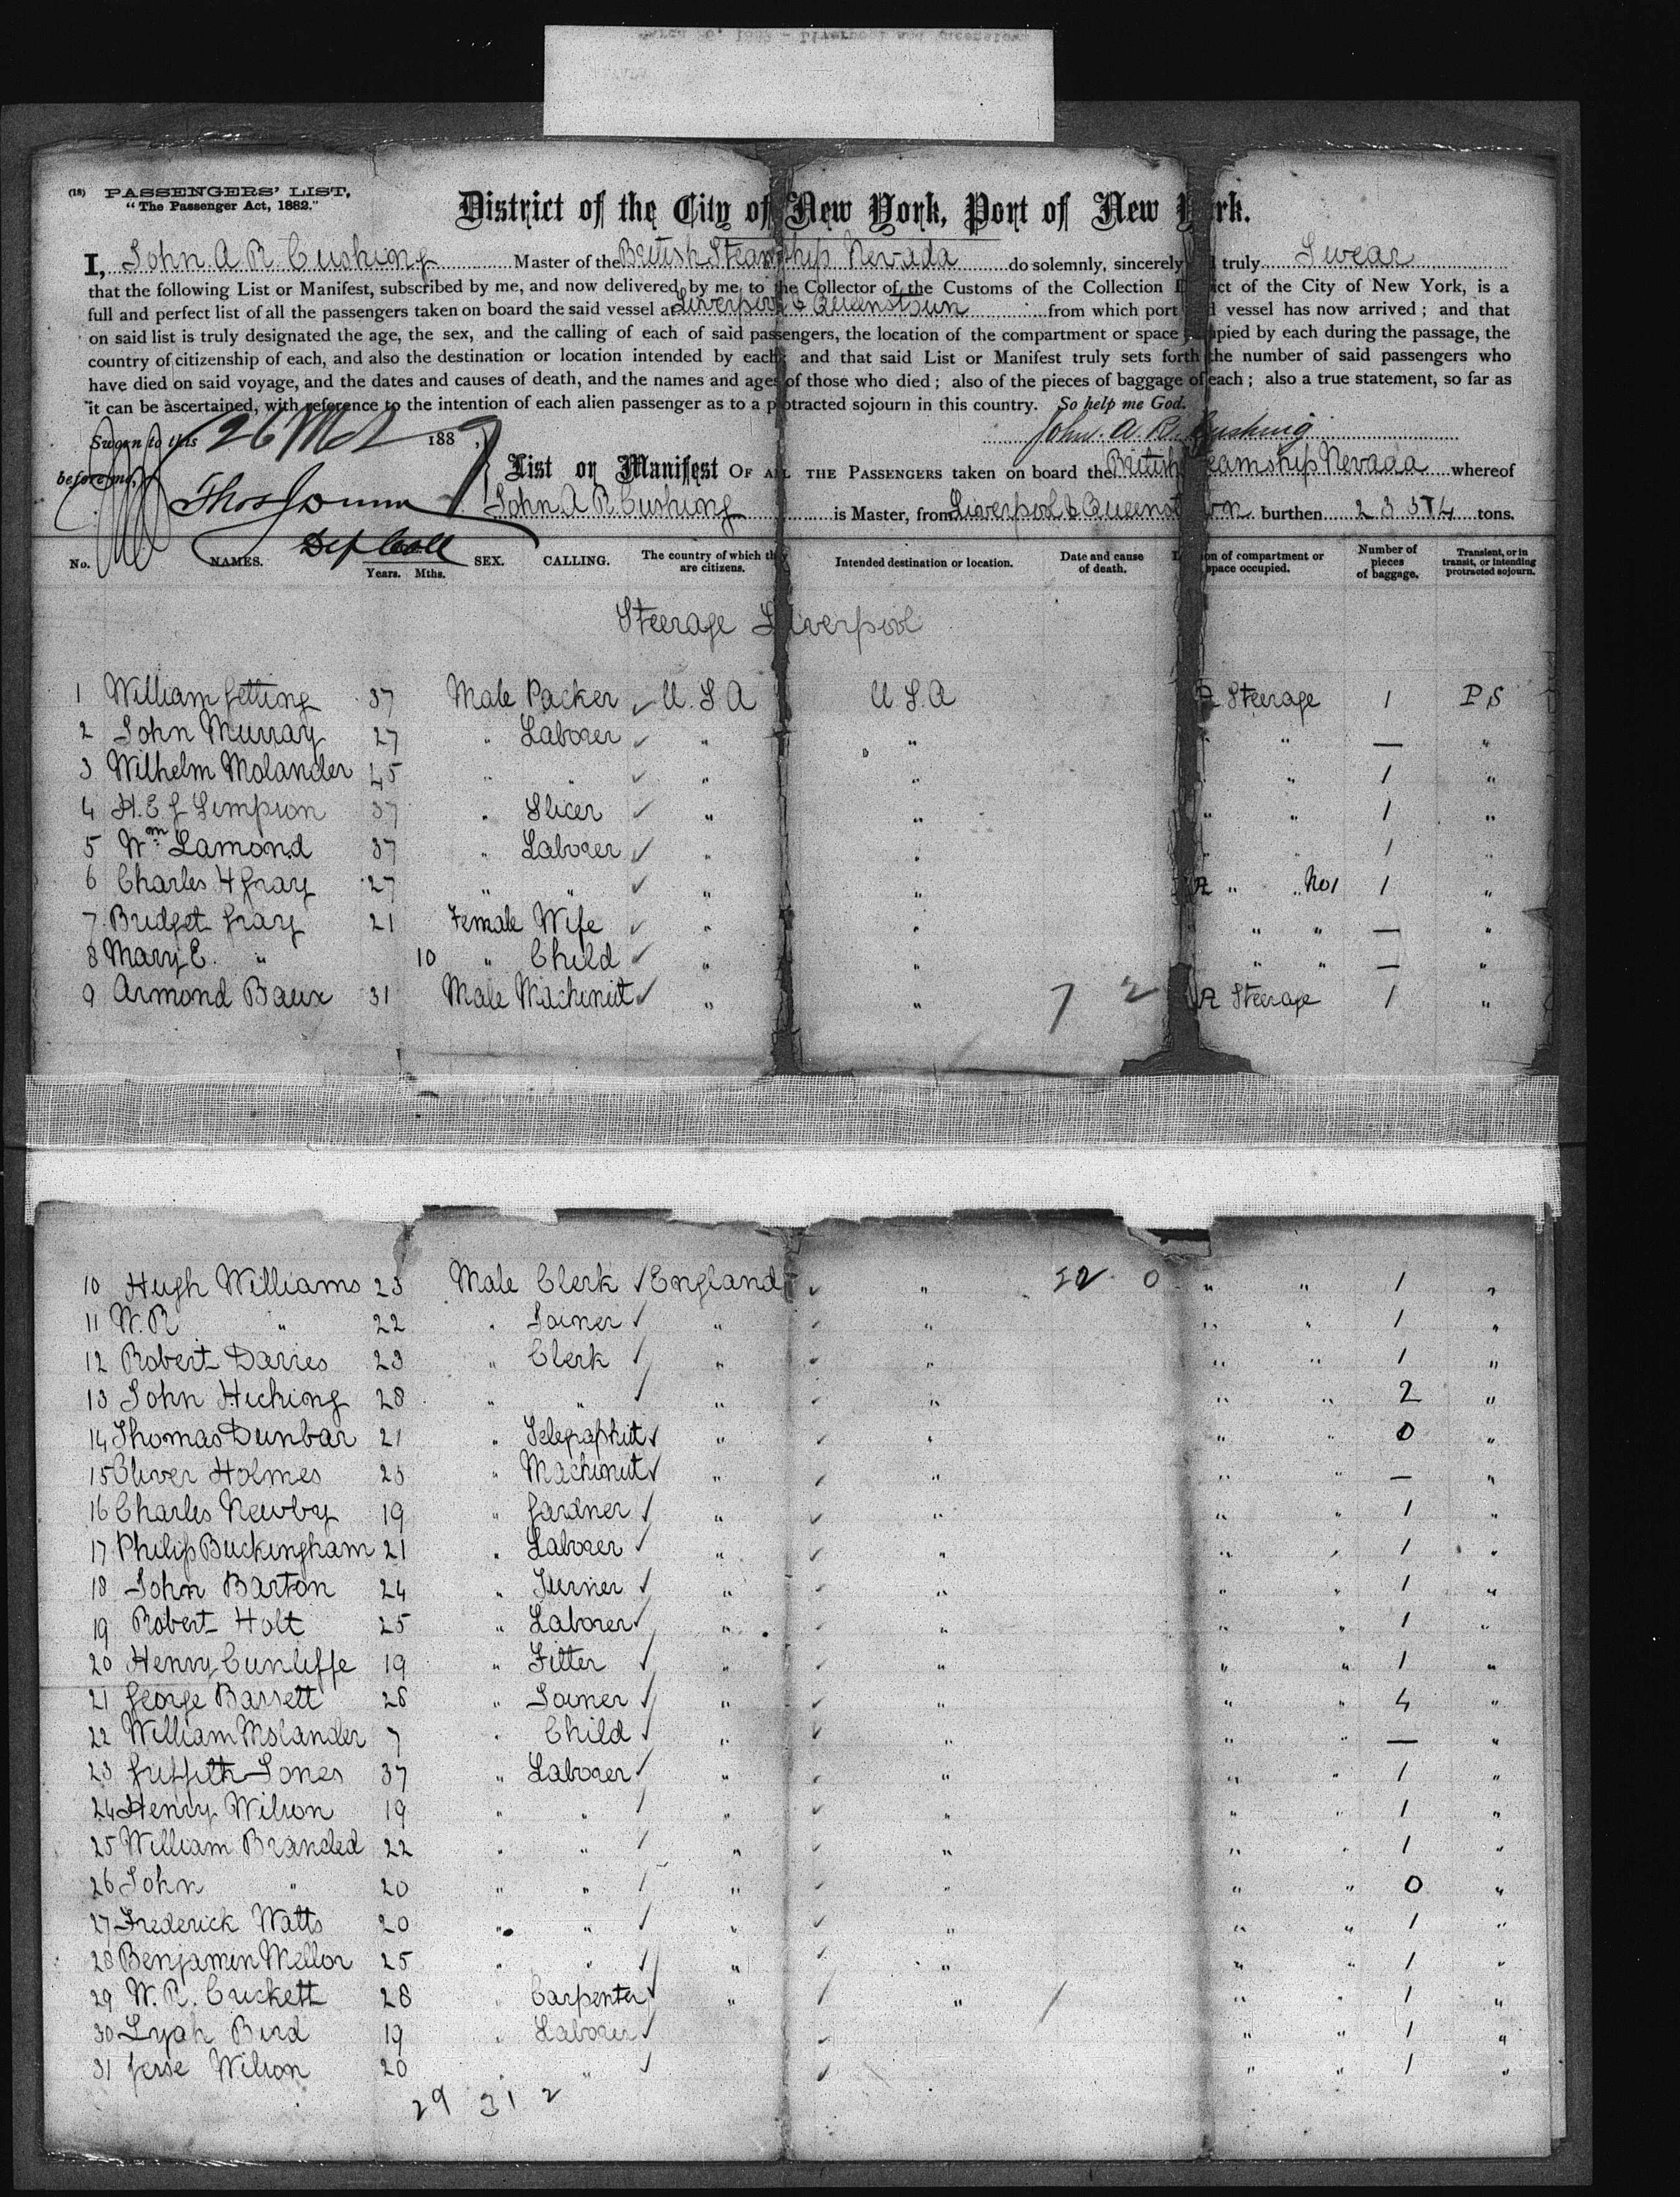 (18) PASSENGERS' LIST.
"The Passenger Act, 1882."
District of the City of New York, Port of New York.
I, John A R Cushing Master of the British Steamship Nevada do solemnly, sincerely truly Swear
that the following List or Manifest, subscribed by me, and now delivered by me to the Collector of the Customs of the Collection District of the City of New York, is a
full and perfect list of all the passengers taken on board the said vessel at Liverpool & Queenstown from which port vessel has now arrived; and that
on said list is truly designated the age, the sex, and the calling of each of said passengers, the location of the compartment or space occupied by each during the passage, the
country of citizenship of each, and also the destination or location intended by each; and that said List or Manifest truly sets forth the number of said passengers who
have died on said voyage, and the dates and causes of death, and the names and ages of those who died; also of the pieces of baggage of each; also a true statement, so far as
it can be ascertained, with reference to the intention of each alien passenger as to a protracted sojourn in this country. So help me God.
Sworn to this 26 Mch 1889 John. A. R. Cushing
before me,
List or Manifest OF ALL THE PASSENGERS taken on board the British Steamship Nevada whereof
John A R Cushing is Master, from Liverpool & Queenstown burthen tons.
Dep Coll
No. NAMES. Years. Mths. SEX. CALLING. The country of which they are citizens. Intended destination or location. Date and cause of death. Location of compartment or space occupied. Number of pieces of baggage. Transient, or in transit, or intending protracted sojourn.
Steerage Liverpool
1 William Getting 37 Male Packer ✓ U.S A U S.A A Steerage 1 P S
2 John Murray 27 " Laborer ✓ " " " " — "
3 Wilhelm Molander 45 " " ✓ " " " 1 "
4 H. E G Simpson 37 " Slicer ✓ " " " " 1 "
5 Wm Lamond 37 " Laborer ✓ " " " " 1 "
6 Charles H Gray 27 " " ✓ " " A " " No 1 1 "
7 Bridget Gray 21 Female Wife ✓ " " " " — "
8 Mary E. " 10 " Child ✓ " " " " — "
9 Armond Baux 31 Male Machinist ✓ " " 7 2 A Steerage 1 "
10 Hugh Williams 23 Male Clerk ✓ England ✓ " 22 0 " " 1 "
11 W. R " 22 " Joiner ✓ " ✓ " " " 1 "
12 Robert Davies 23 " Clerk ✓ " ✓ " " " 1 "
13 John Hiching 28 " " ✓ " ✓ " " " 2 "
14 Thomas Dunbar 21 " Telegraphist ✓ " ✓ " " " 0 "
15 Oliver Holmes 25 " Machinist ✓ " ✓ " " " — "
16 Charles Newby 19 " Gardner ✓ " ✓ " " " 1 "
17 Philip Buckingham 21 " Laborer ✓ " ✓ " " " 1 "
18 John Barton 24 " Turner ✓ " ✓ " " " 1 "
19 Robert Holt 25 " Laborer ✓ " ✓ " " " 1 "
20 Henry Cunliffe 19 " Fitter ✓ " ✓ " " " 1 "
21 George Bassett 26 " Joiner ✓ " ✓ " " " 4 "
22 William Molander 7 " Child ✓ " ✓ " " " — "
23 Griffith Jones 37 " Laborer ✓ " ✓ " " " 1 "
24 Henry Wilson 19 " " ✓ " ✓ " " " 1 "
25 William Branded 22 " " ✓ " ✓ " " " 1 "
26 John " 20 " " ✓ " ✓ " " " 0 "
27 Frederick Watts 20 " " ✓ " ✓ " " " 1 "
28 Benjamin Mellor 25 " " ✓ " ✓ " " " 1 "
29 W. R. Crickett 28 " Carpenter ✓ " ✓ " " " 1 "
30 Bird 19 " Laborer ✓ ✓ " " 1 "
31 Jesse Wilson 20 " " ✓ ✓ " " 1 "
29 31 2